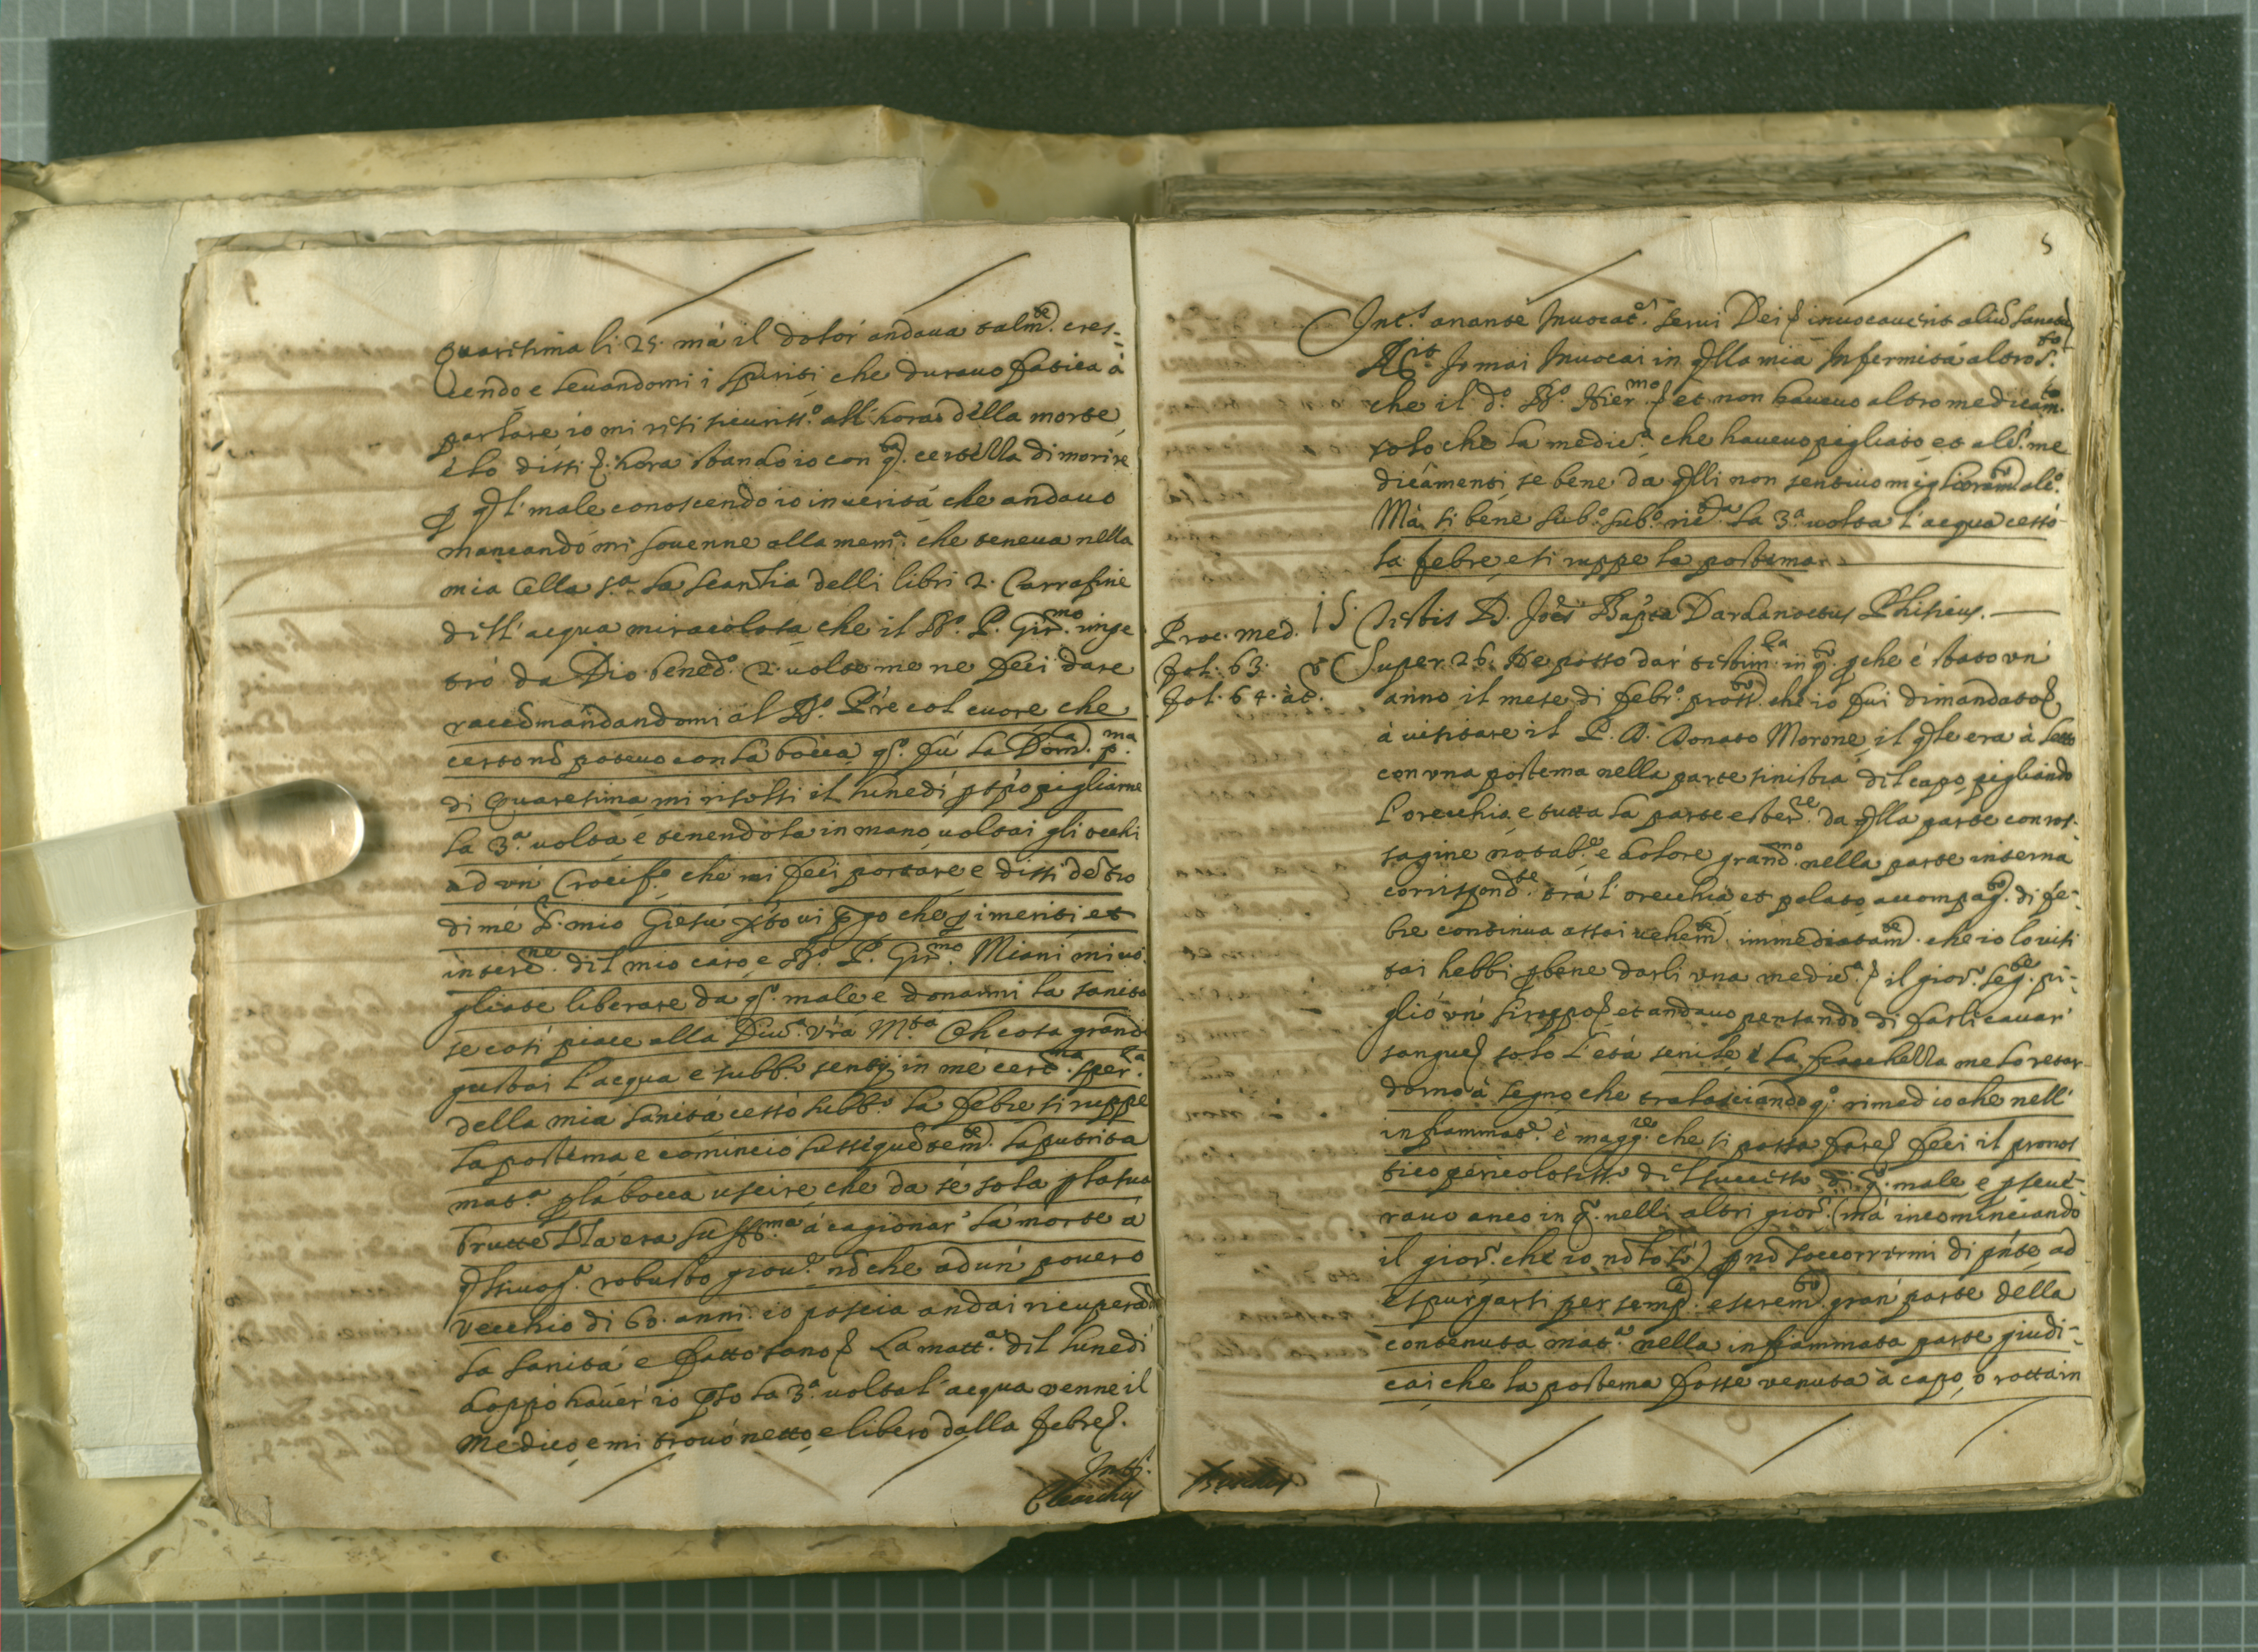 quaresima li 25. mà il dolor andaua talm.te cres-
cendo e leuandomi i spiriti che durauo fatica à
parlare io mi vesti sicuriss.o all'hora della morte,
è lo dissi hora stando io con q.ta certella di morire
p ql male conoscendo io in uerità che andauo
mancando mi souenne alla mem.a che teneua nella
mia Cella s.a la scantia delli libri 2. Carrafine
dell'acqua miracolosa che il B.o P. Gir.mo impe
trò da Dio bened.o 2. uolte me ne feci dare
raccomandandomi al B.o P're col cuore che
certo nõ poteuo con la bocca, q.o fù la Dom.a p.ma
di Quaresima mi risolsi il lunedi pspò pigliarne
la 3.a uolta e tenendola in mano uoltai gli occhi
ad vn Crocif.o che mi feci portare e dissi detro
di me S. mio Giesù xpo ui pgo che p i meriti et
interc.ne del mio caro e B.o P. Gir.mo Miani mi uo-
gliate liberare da q.o male e donarmi la sanità
se così piace alla Diu.a Vrã M.tà Oh cosa grande
gustai l'acqua e subb.o sentij in me cert.ma sper.za
della mia sanità cessò subb.o la febre si ruppe
la postema e cominciò susseguetem.te la putrita
mat.a p la bocca uscire che da se sola p la sua
bruttella era suff.ma à cagionar' la morte à
qlsiuog.a robusto giou.e nõ che ad un' pouero
vecchio di 60. anni. io poscia andai ricuperãdo
la sanità e fatto sano La matt.a del lunedì
doppo hauer' io pso la 3.a uolta l'acqua venne il
Medico, e mi trouò netto, e libero dalla febre.
Int.s
5
Int.s an ante Invocat.e serui Dei inuocauerit aliũ sanctũ
R.it Io mai Inuocai in qlla mia Infermità altro S.to
che il d.o B.o Hier.mo et non haueuo altro medicam.to
solo che la medic.a che haueuo pigliato et alt.i me
dicamenti se bene da qlli non sentiuo miglioram.to alc.o
Mà si bene sub.o sub.o riceuuta la 3.a uolta l'acqua cessò
la febre, e si ruppe la postema.
Proc. med.
fol. 63.
fol. 64. àt.
15. Testis D. Joẽs Bap'ta Dardanoctus Phisicus.
Super 26. Ne posso dar' testim.za in q.to pche è stato vn'
anno il mese di febr.o pross.o che io fui dimandato
à visitare il P. D. Donato Morone, il qle era à letto
con vna postema nella parte sinistra del capo, pigliando
l'orecchia, e tutta la parte ester.re da qlla parte con ros-
sagine notab.e e dolore grand.mo nella parte interna
corrispond.te trà l'orecchia et palato accompag.to di fe-
bre continua assai vehem.te immediatam.te che io lo visi
tai hebbi p bene darli vna medic.a il gior.o seg.te pi-
gliò vn' siroppo et andauo pensando di farli cauar'
sangue solo l'età senile è la fiacchella me lo retar-
dorno à segno che tralasciando q.o rimedio che nell'
infiammat.e è magg.re che si possa fare feci il pronos
tico pericolosiss.o del successo di q.o male e pseue-
rauo anco in q.o nelli altri gior.i (mà incominciando
il gior.o che io nõ lo sò) p nõ soccorrirmi di p'nte ad
espurgarsi per semp.e e serem.to gran' parte della
contenuta mat.a nella infiammata parte giudi-
cai che la postema fosse venuta à capo, o rotta in